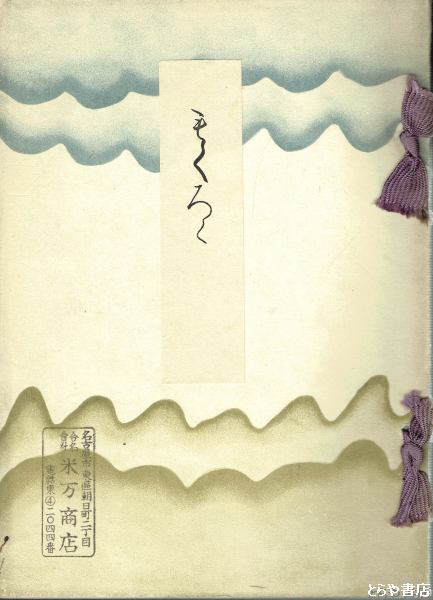 もくろく
名古屋市東區朝日町二丁目
合名會社
米万商店
電話東④二〇四四番
とらや書店